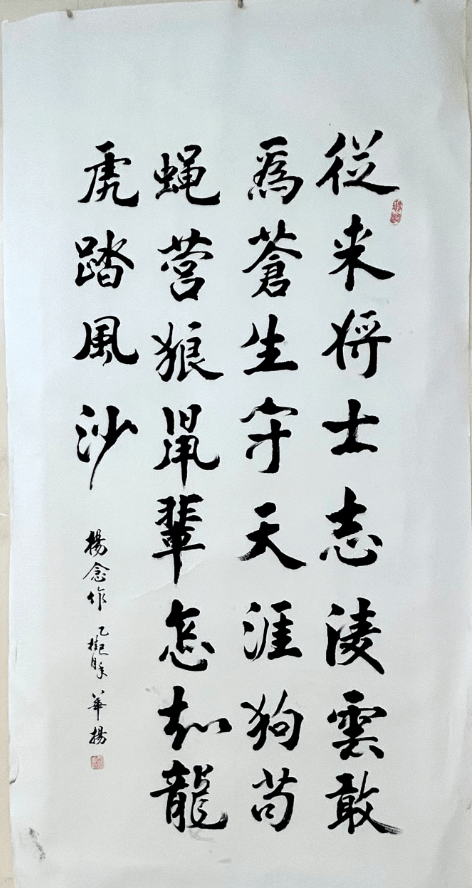 從来將士志淩雲敢
為蒼生守天涯狗苟
蝇营狼鼠輩怎知龍
虎踏風沙
楊念作 乙 華揚